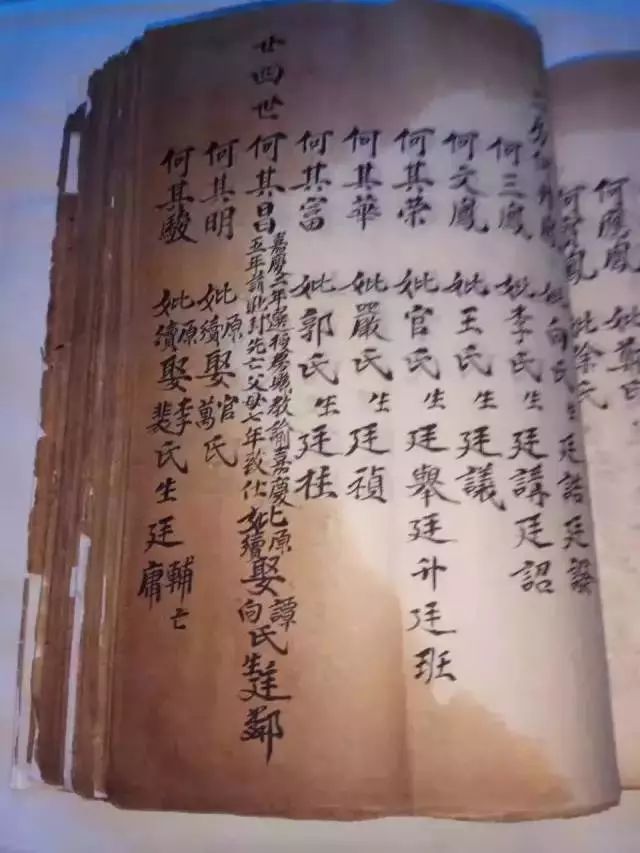 何應鳳 妣鄭氏
鳳 妣徐氏
妣向氏生廷誥廷
何三鳳 妣李氏生廷講廷詔
何文鳳 妣王氏生廷議
何其榮 妣官氏生廷舉廷升廷班
何其華 妣嚴氏生廷禎
何其富 妣郭氏生廷柱
廿四世 何其昌
嘉慶二年選授縣教諭嘉慶
五年請封先亡父母七年致仕
妣原譚
續娶向氏生廷鄰
何其明 妣原官
續娶萬氏
何其駿 妣原李
續娶裴氏生廷輔亡
庸